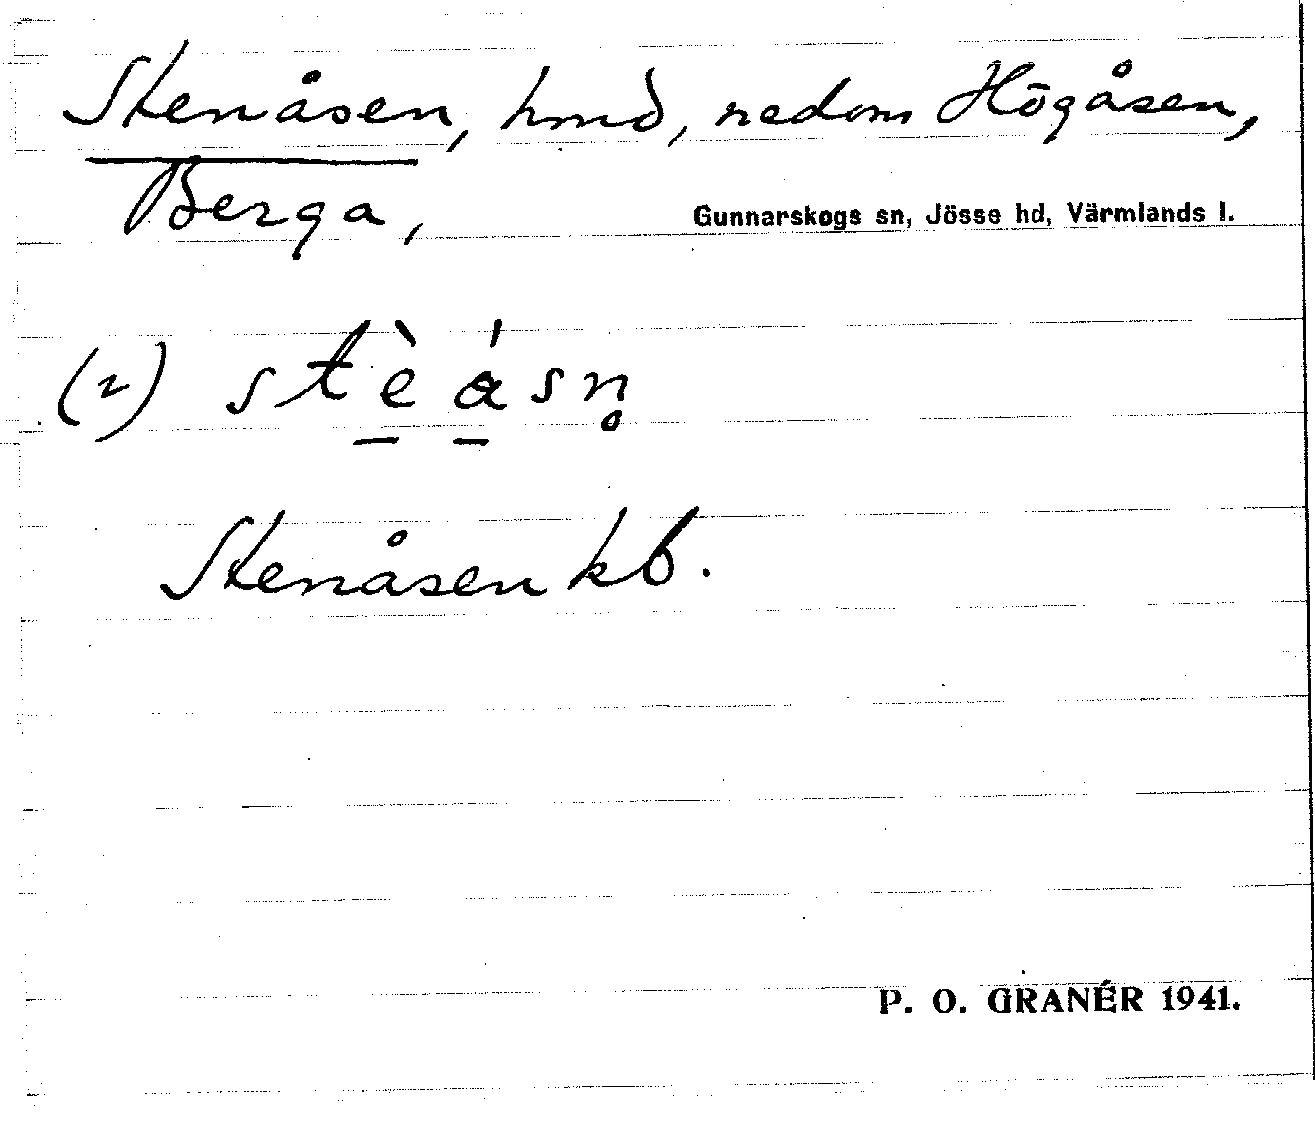 Stenåsen, hmd, nedom Högåsen,
Berga,
Gunnarskogs sn, Jösse hd, Värmlands l.
(2) stè̱á̱sn̥
Stenåsen kb.
P. O. GRANÉR 1941.